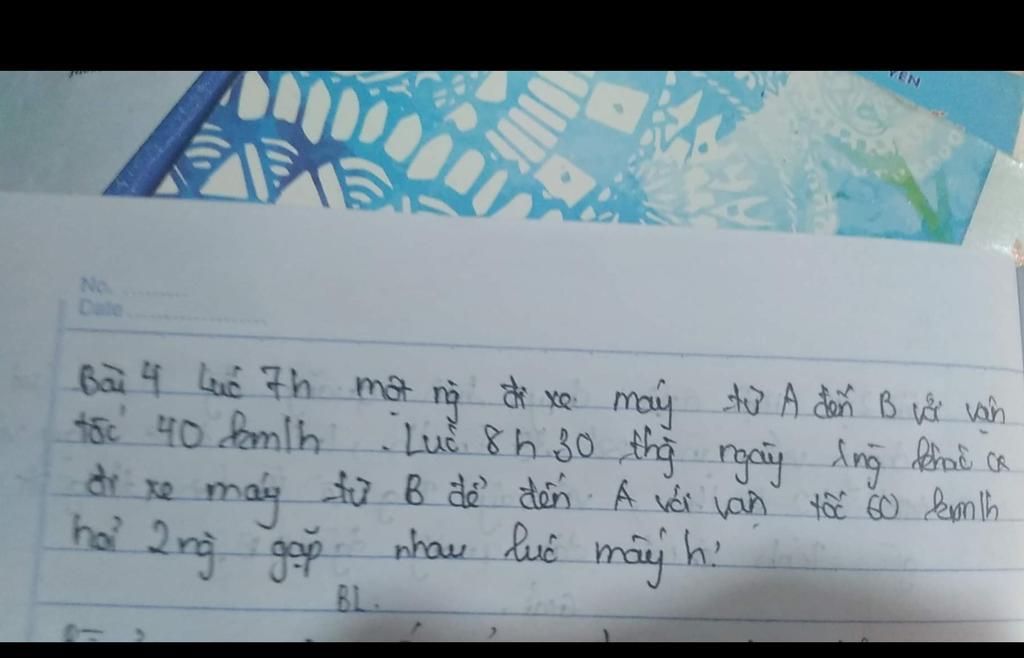 YÊN
No.
Date
Bài 4 Lúc 7h một ng̀ đi xe máy từ A đến B với vận
tốc 40 km/h. Lúc 8h30 thg̀ ngày 1ng̀ khác cx
đi xe máy từ B để đến A với vận tốc 60 km/h
hỏi 2ng̀ gặp nhau lúc mấy h?
BL.